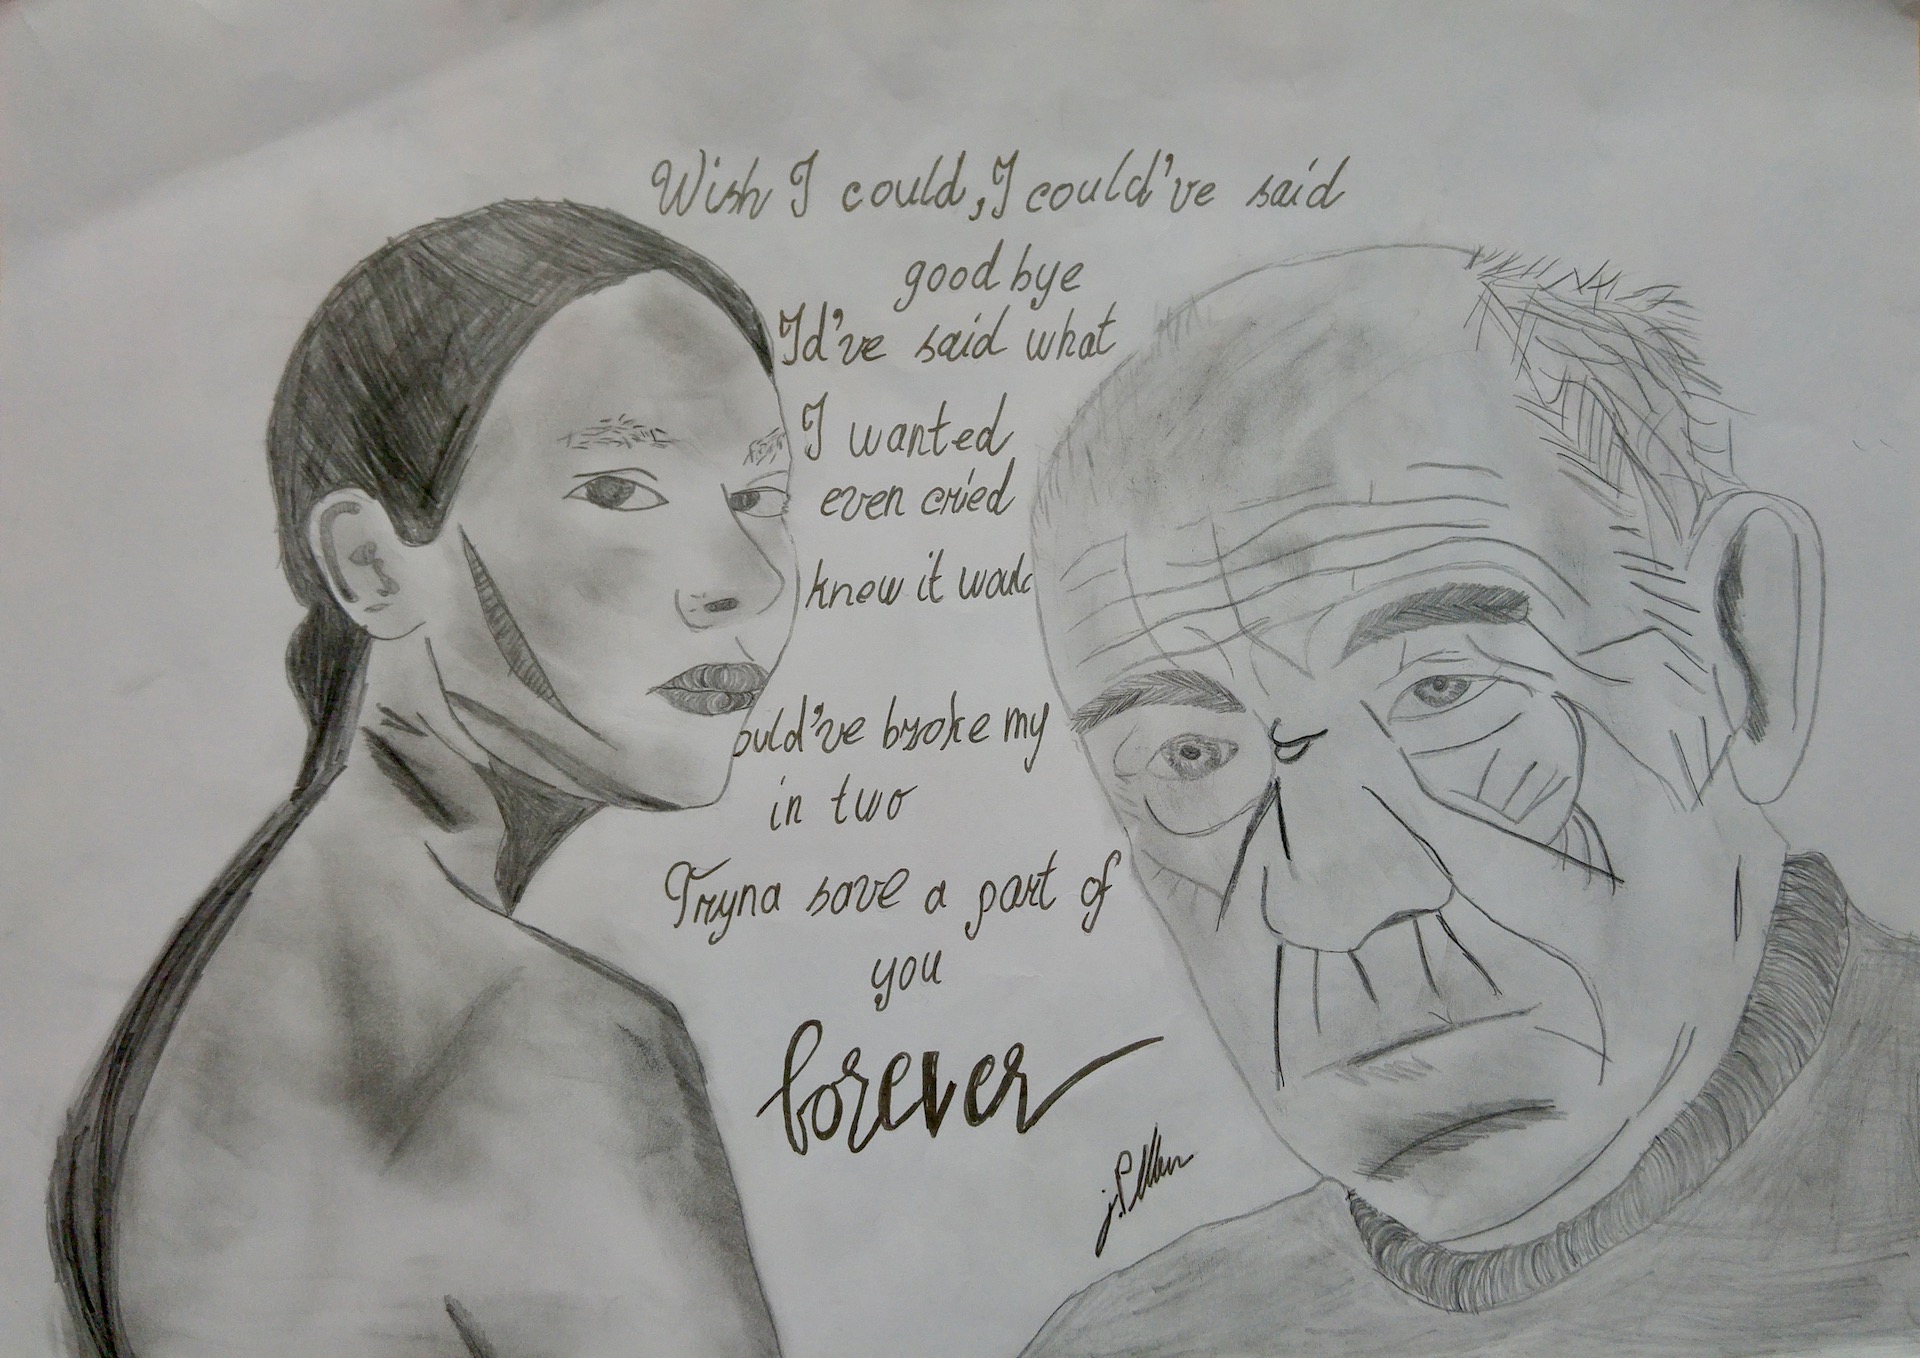 Wish I could, I could've said
good bye
I'd've said what
I wanted
even cried
knew it would
ould've broke my
in two
Tryna save a part of
you
forever